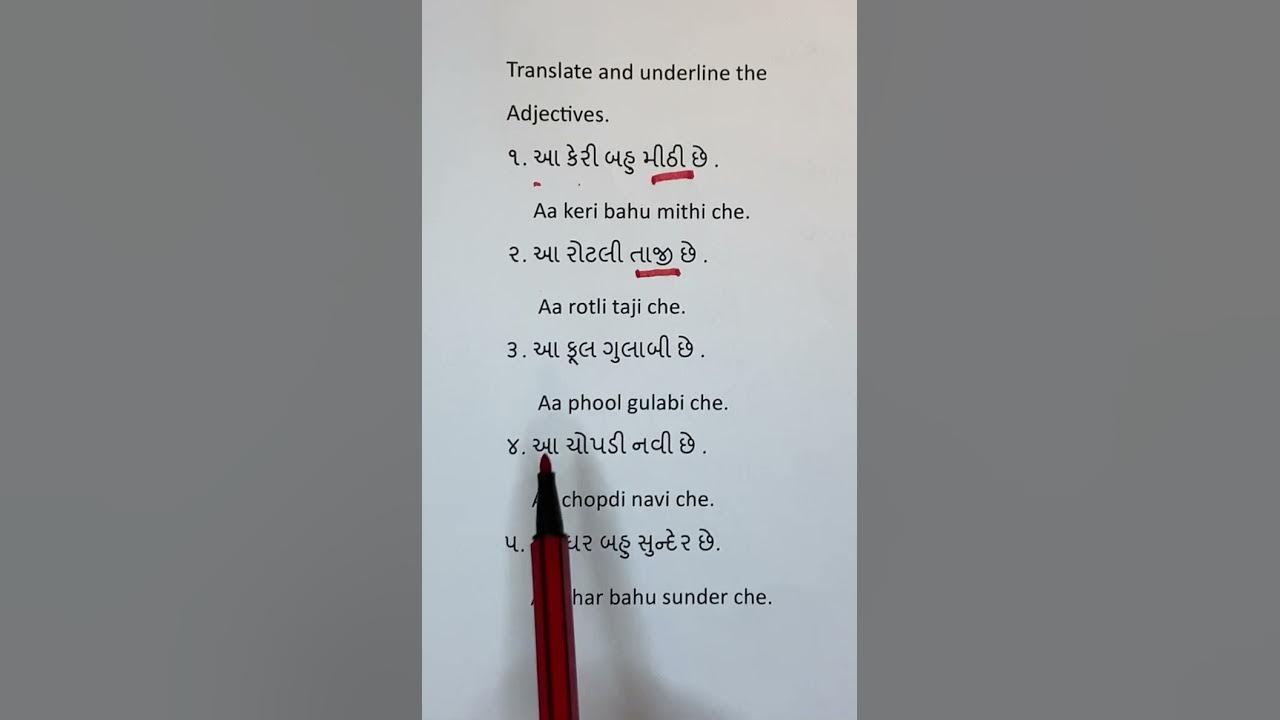 Translate and underline the
Adjectives.
૧. આ કેરી બહુ મીઠી છે .
Aa keri bahu mithi che.
૨. આ રોટલી તાજી છે .
Aa rotli taji che.
૩. આ ફૂલ ગુલાબી છે .
Aa phool gulabi che.
૪. આ ચોપડી નવી છે .
chopdi navi che.
૫. ઘર બહુ સુન્દેર છે.
har bahu sunder che.